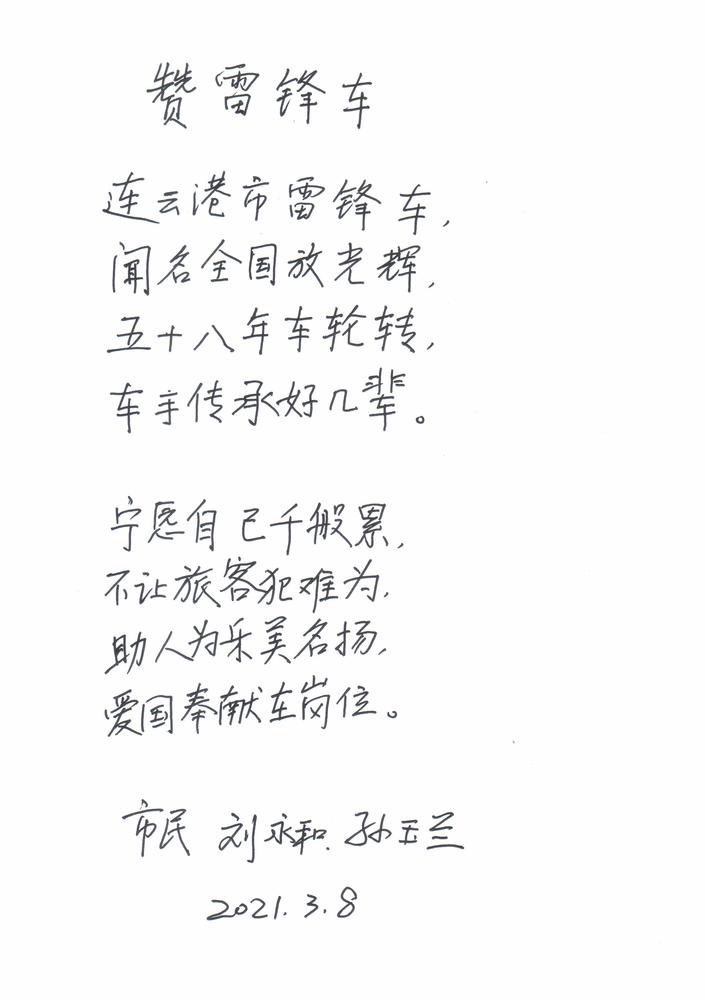 赞雷锋车
连云港市雷锋车,
闻名全国放光辉,
五十八年车轮转,
车手传承好几辈。
宁愿自己千般累,
不让旅客犯难为,
助人为乐美名扬,
爱国奉献在岗位。
市民 刘永和. 孙玉兰
2021.3.8